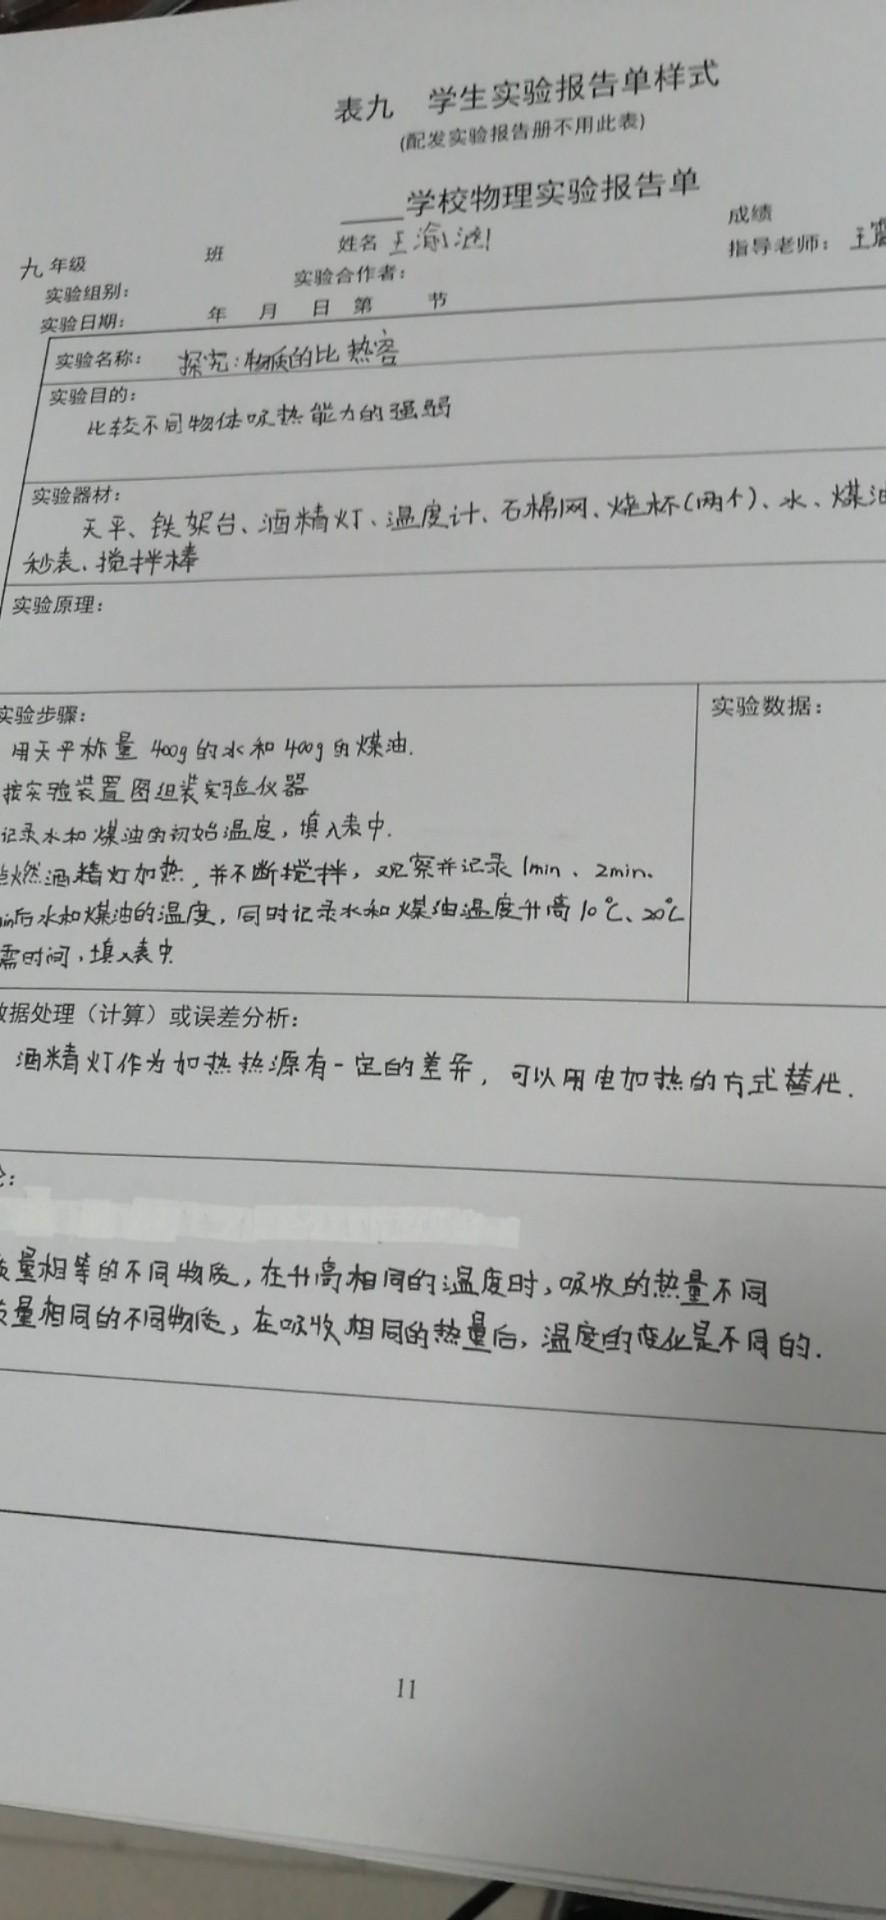 表九 学生实验报告单样式
(配发实验报告册不用此表)
学校物理实验报告单
成绩
九年级 班 姓名 王渝 指导老师: 王
实验组别: 实验合作者:
实验日期: 年 月 日 第 节
实验名称: 探究:物质的比热容
实验目的:
比较不同物体吸热能力的强弱
实验器材:
天平、铁架台、酒精灯、温度计、石棉网、烧杯(两个)、水、煤油
秒表、搅拌棒
实验原理:
实验步骤: 实验数据:
用天平称量400g的水和400g的煤油.
按实验装置图组装实验仪器
记录水和煤油的初始温度,填入表中.
点燃酒精灯加热,并不断搅拌,观察并记录1min、2min、
min后水和煤油的温度,同时记录水和煤油温度升高10℃、20℃
需时间,填入表中.
数据处理(计算)或误差分析:
酒精灯作为加热热源有一定的差异,可以用电加热的方式替代.
论:
质量相等的不同物质,在升高相同的温度时,吸收的热量不同
质量相同的不同物质,在吸收相同的热量后,温度的变化是不同的.
11